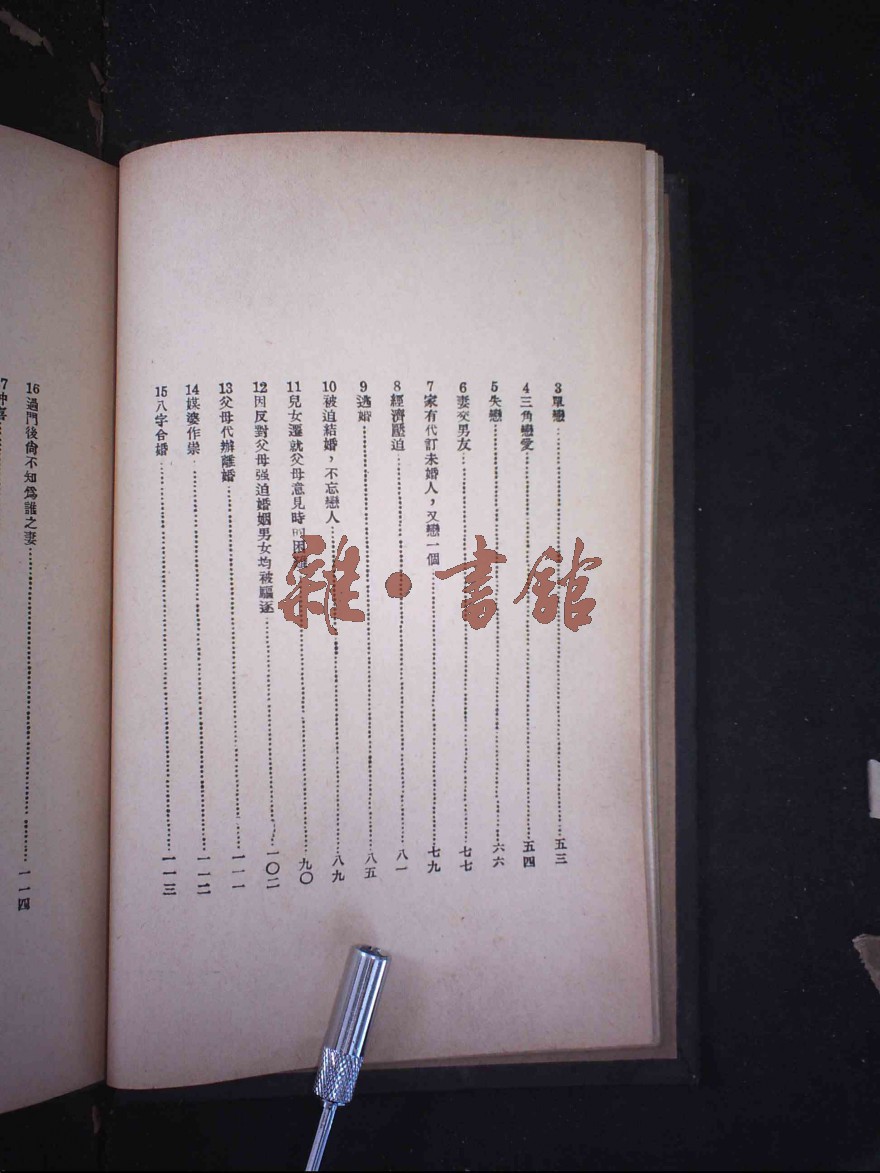 3單戀……五三
4三角戀愛……五四
5失戀……六六
6妻交男友……七七
7家有代訂未婚人，又戀一個……七九
8經濟壓迫……八一
9逃婚……八五
10被迫結婚，不忘戀人……八九
11兒女遷就父母意見時的困難……九〇
12因反對父母强迫婚姻男女均被驅逐……一〇二
13父母代辦離婚……一一一
14媒婆作祟……一一二
15八字合婚……一一三
16過門後尙不知爲誰之妻……一一四
7冲喜……
雜·書館